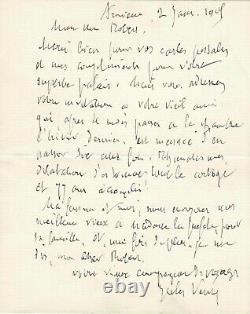 Amiens, 2 Janv. 1905
Mon cher Robert,
Merci bien pour vos cartes postales
et mes compliments pour votre
superbe palais. Mais vous adressez
votre invitation à votre vieil ami
qui après le mois passé à la chambre
l'hiver dernier, est menacé d'en
passer dix cette fois.
et 77 ans accomplis!
Ma femme et moi, nous envoyons nos
meilleurs vœux à Madame
sa famille, et une fois de plus, je me
dis, mon cher Robert,
votre vieux compagnon de voyages
Jules Verne